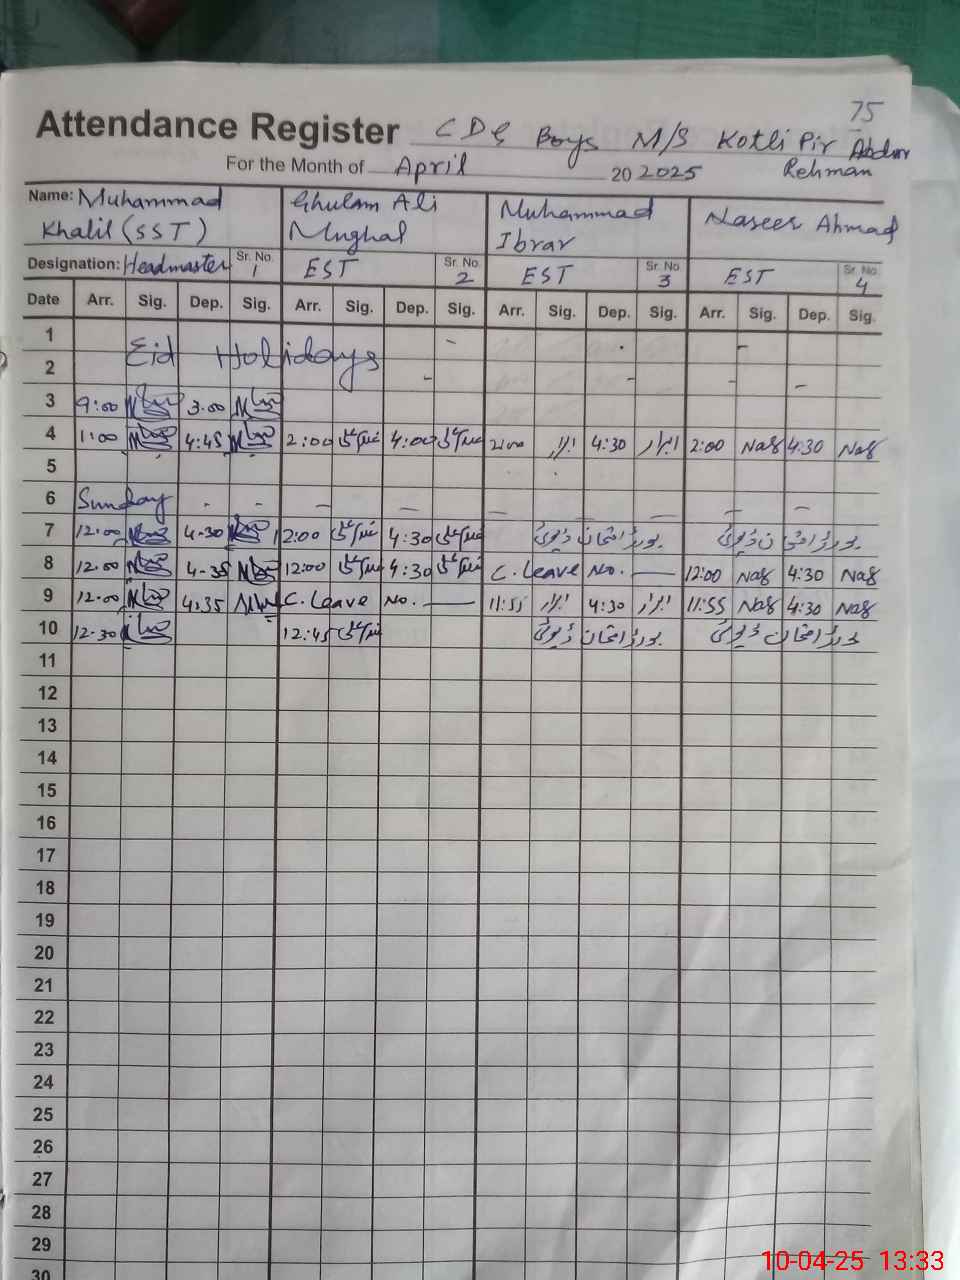 75
Attendance Register CDG Boys M/S Kotli Pir Abdur
Rehman
For the Month of April 20 2025
Name: Muhammad Khalil (SST) Ghulam Ali Mughal Muhammad Ibrar Naseer Ahmad
Designation: Headmaster Sr. No. 1 EST Sr. No. 2 EST Sr. No. 3 EST Sr. No. 4
Date Arr. Sig. Dep. Sig. Arr. Sig. Dep. Sig. Arr. Sig. Dep. Sig. Arr. Sig. Dep. Sig.
1
Eid Holidays
2
3 9:00 3.00
4 1:00 4:45 2:00 غلام علی 4:00 غلام علی 2:00 ابرار 4:30 ابرار 2:00 Nas 4:30 Nas
5
6 Sunday - - - - - - - -
7 12:00 4-30 12:00 غلام علی 4:30 غلام علی بورڈ امتحان ڈیوٹی بورڈ امتحان ڈیوٹی
8 12.00 4-35 12:00 غلام علی 4:30 غلام علی C. Leave No. — 12:00 Nas 4:30 Nas
9 12.00 4.35 C. Leave No. — 11:55 ابرار 4:30 ابرار 11:55 Nas 4:30 Nas
10 12.30 12:45 غلام علی بورڈ امتحان ڈیوٹی بورڈ امتحان ڈیوٹی
11
12
13
14
15
16
17
18
19
20
21
22
23
24
25
26
27
28
29
30
10-04-25 13:33